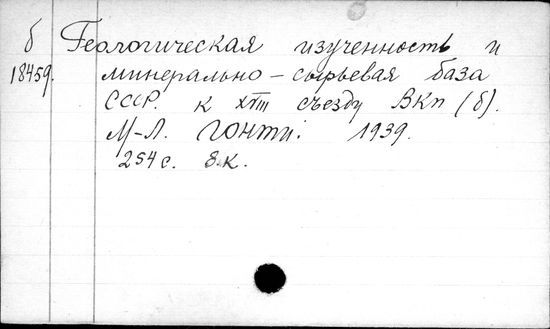 б Геологическая изученность и
18459. минерально-сырьевая база
СССР. к XVIII съезду ВКП (б).
М-Л. ГОНТИ. 1939.
254 с. 8.к.